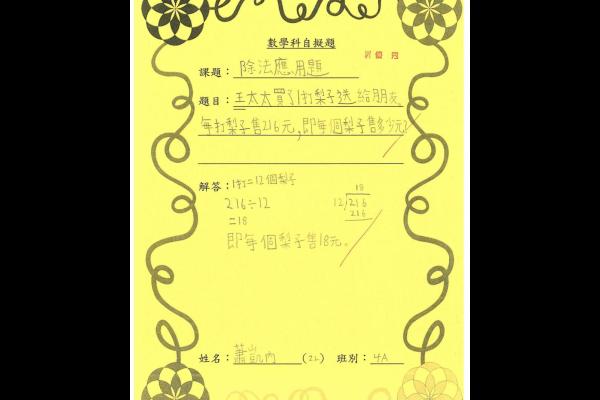 數學科自擬題
課題：除法應用題
題目：王太太買了1打梨子送給朋友
每打梨子售216元，即每個梨子售多少元？
解答：1打=12個梨子
216÷12
=18
18
12)216
216
即每個梨子售18元。
姓名：蕭凱 (22) 班別：4A